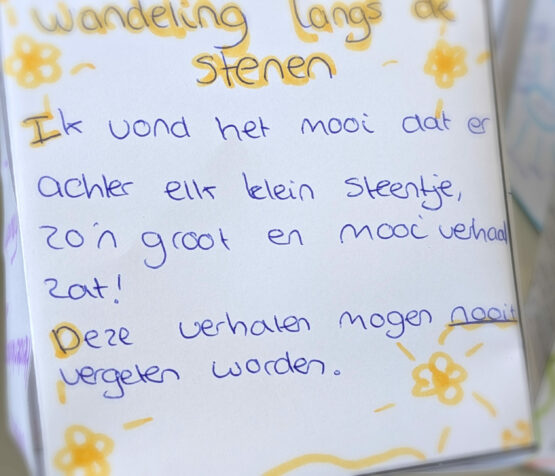 Wandeling langs de
stenen
Ik vond het mooi dat er
achter elk klein steentje,
zo'n groot en mooi verhaal
zat!
Deze verhalen mogen nooit
vergeten worden.